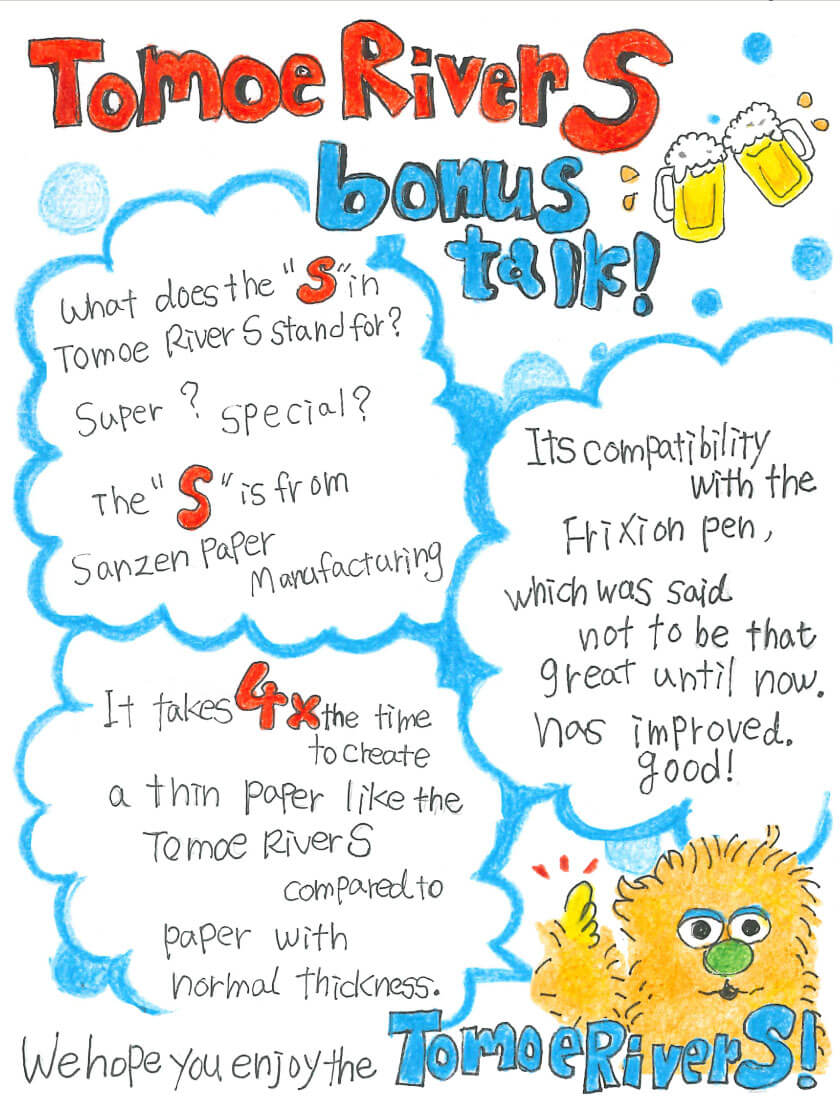 Tomoe River S
bonus
talk!
What does the "S" in
Tomoe River S stand for?
Super ? special?
The "S" is from
Sanzen Paper
Manufacturing
Its compatibility
with the
Frixion pen,
which was said
not to be that
great until now.
has improved.
good!
It takes 4x the time
to create
a thin paper like the
Tomoe River S
compared to
paper with
normal thickness.
We hope you enjoy the Tomoe River S!